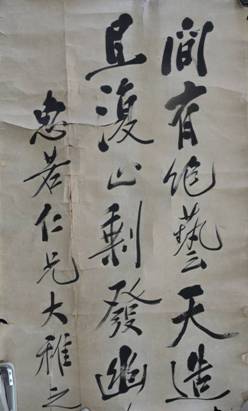 間有絕藝云天造
且復山剩發幽
惠若仁兄大雅之